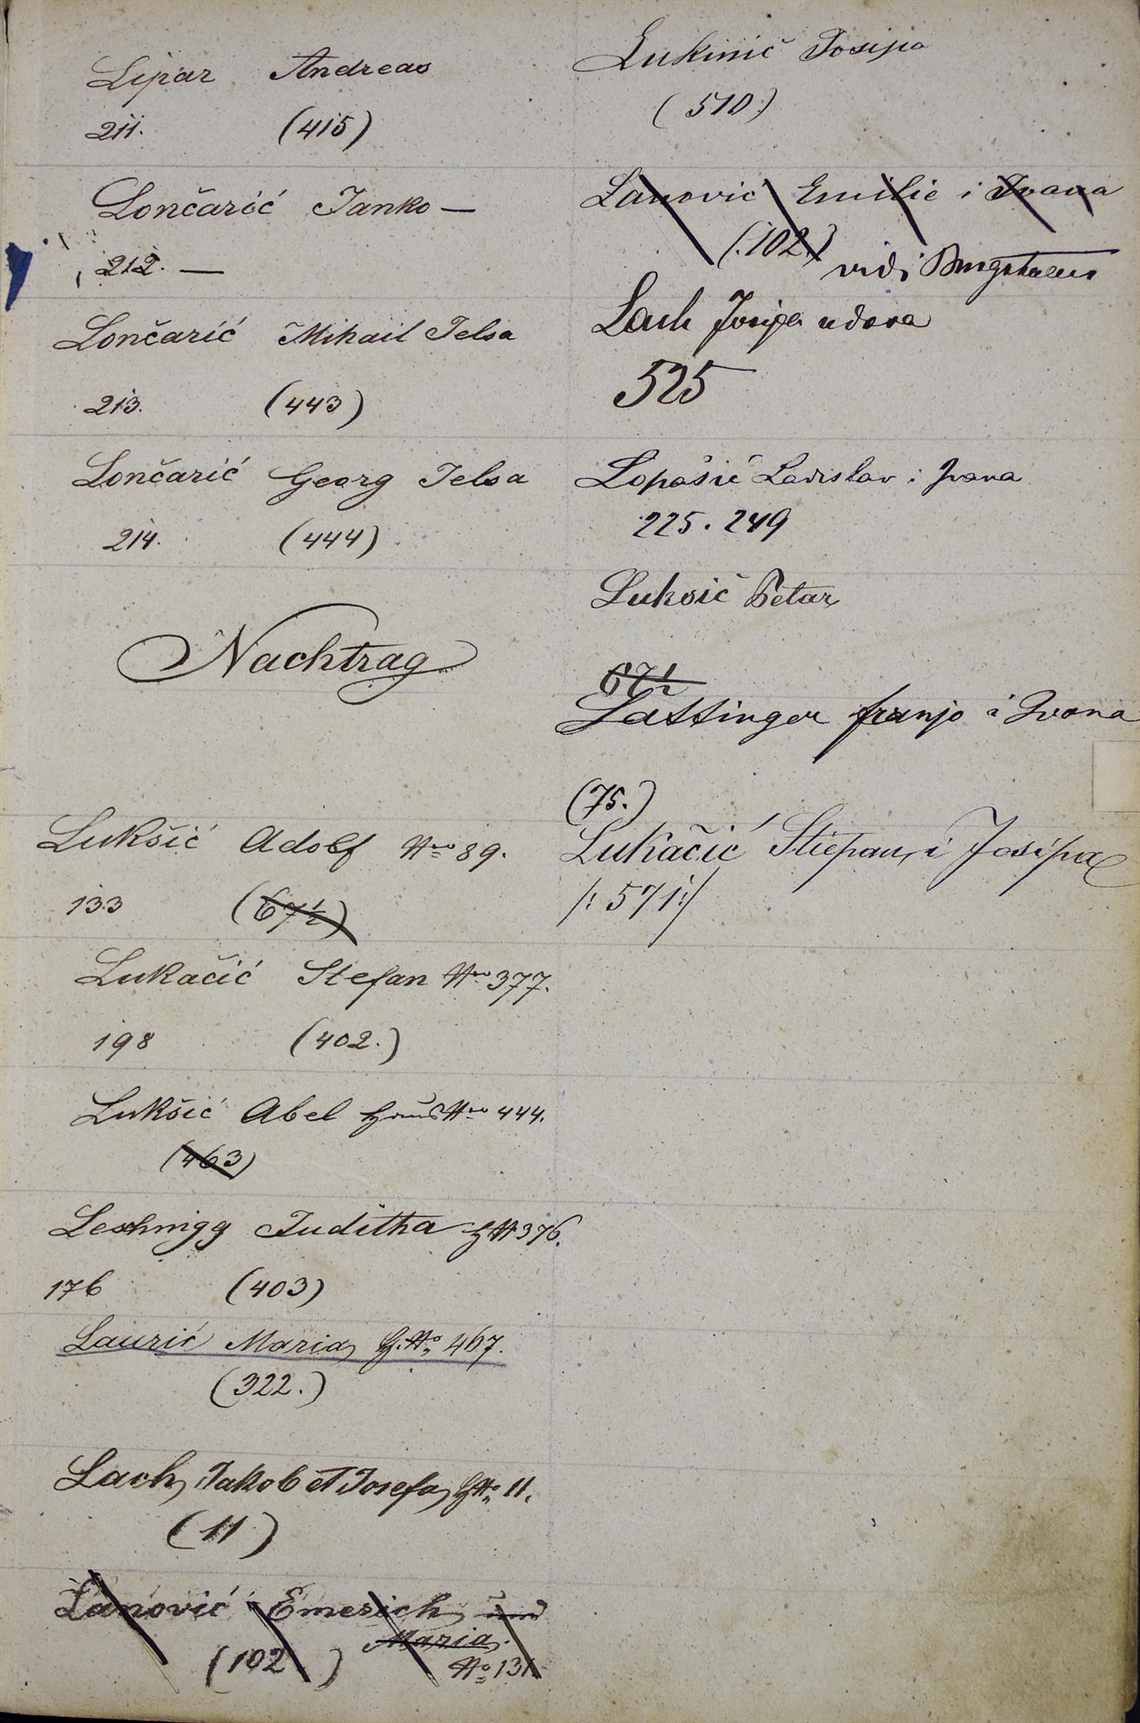 Lipar Andreas
211. (415)
Lončarić Janko —
212. —
Lončarić Mihail Jelsa
213. (443)
Lončarić Georg Jelsa
214. (444)
Nachtrag
Lukšić Adolf Nro 89.
133 (67½)
Lukačić Stefan Nro 377.
198 (402.)
Lukšić Abel Haus Nro 444.
(463)
Leschnigg Juditha HN 376.
176 (403)
Laurić Maria H.No. 467.
(322.)
Lach Jakob et Josefa HNo. 11.
(11)
Lanović Emerich und
Maria
(102) No. 131
Lukinić Josipa
(510.)
Lanović Emilie i Ivana
(102.)
vidi
Lach Josipa udova
525
Lopašić Ladislav i Ivana
225. 249
Lukšić Petar
67½
Lattinger franjo i Ivana
(75.)
Lukačić Stiepan i Josipa
/: 571 :/